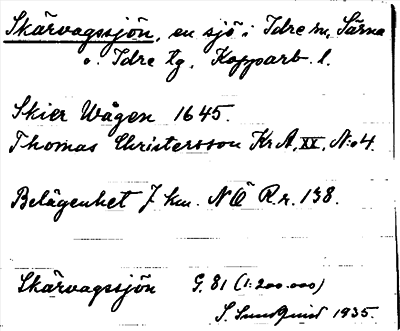 Skärvagssjön, en sjö i Idre sn, Särna
o. Idre tg, Kopparb. l.
Skier Wågen 1645.
Thomas Christersson Kr A, XX, N:o 4.
Belägenhet 7 km. NÖ R.r. 138.
Skärvagssjön G. 81 (1:200.000)
S. Sundquist 1935.